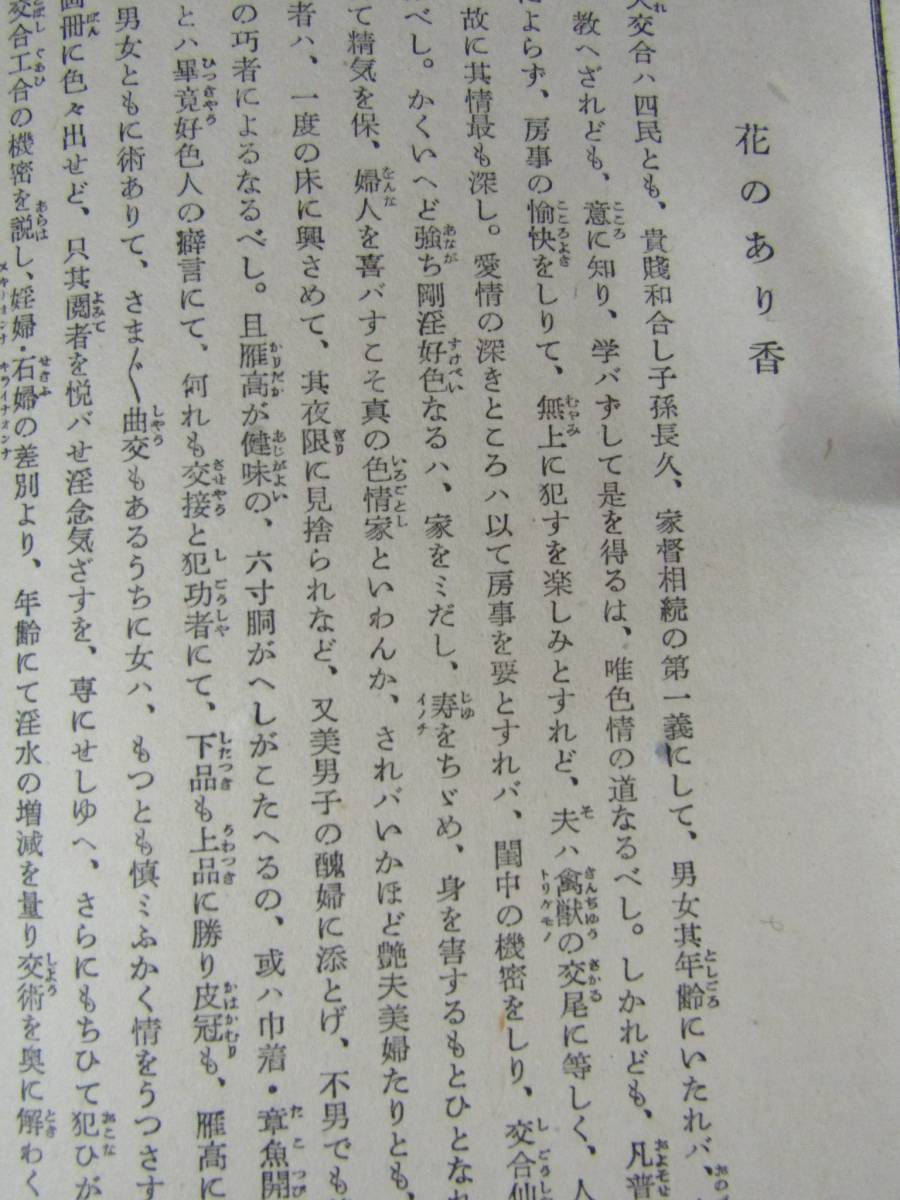 花のあり香
夫交合ハ四民とも、貴賤和合し子孫長久、家督相続の第一義にして、男女其年齢にいたれバ、
教へざれども、意に知り、学バずして是を得るは、唯色情の道なるべし。しかれども、凡普
によらず、房事の愉快をしりて、無上に犯すを楽しみとすれど、夫ハ禽獣の交尾に等しく、人
故に其情最も深し。愛情の深きところハ以て房事を要とすれバ、閨中の機密をしり、交合仙
べし。かくいへど強ち剛淫好色なるハ、家をミだし、寿をちゞめ、身を害するもとひとなれ
て精気を保、婦人を喜バすこそ真の色情家といわんか、されバいかほど艶夫美婦たりとも、
者ハ、一度の床に興さめて、其夜限に見捨られなど、又美男子の醜婦に添とげ、不男でも
の巧者によるなるべし。且雁高が健味の、六寸胴がへしがこたへるの、或ハ巾着・章魚開
とハ畢竟好色人の癖言にて、何れも交接と犯功者にて、下品も上品に勝り皮冠も、雁高に
男女ともに術ありて、さま〴〵曲交もあるうちに女ハ、もつとも慎ミふかく情をうつさす
画冊に色々出せど、只其閲者を悦バせ淫念気ざすを、専にせしゆへ、さらにもちひて犯ひが
交合工合の機密を説し、婬婦・石婦の差別より、年齢にて淫水の増減を量り交術を奥に解わく